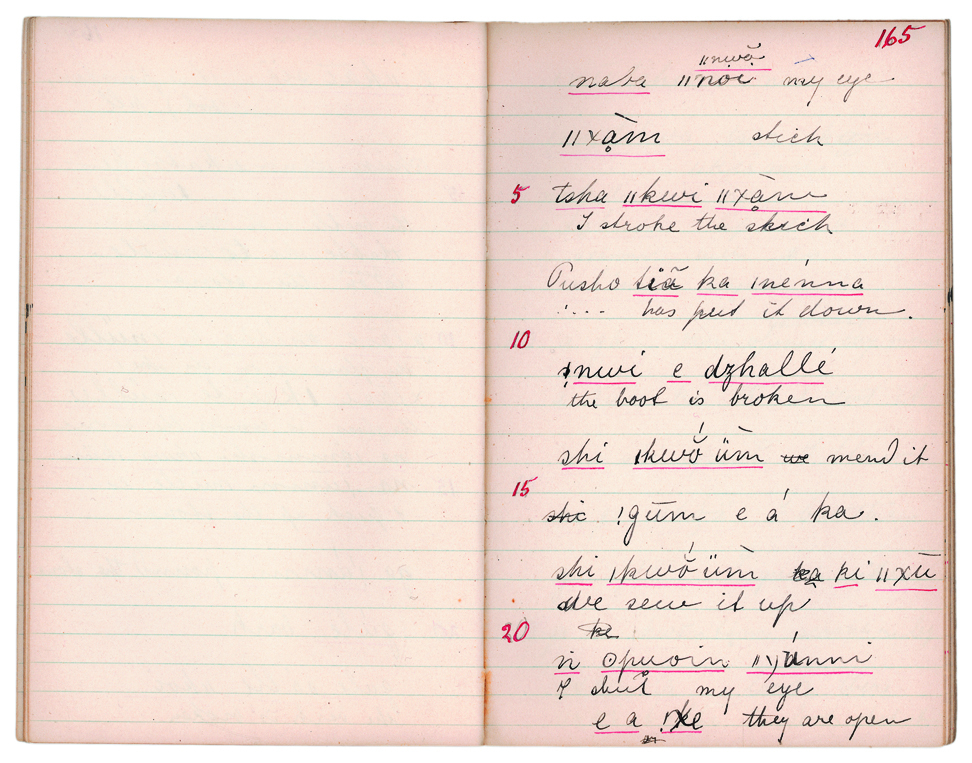 165
ǁnwā̆
naba ǁnoi my eye
ǁxạ̀m stick
5 tsha ǁkwi ǁxạ̀m
I stroke the stick
Pusho tiā̆ ka ǀnénna
' . . . has put it down.
10
ǃnwi e dzhallé
the boot is broken
shi ǀkwŏ́ ǜm we mend it
15
shi ǃgūm e á ka.
shi ǀkwŏ́ üm̀ ka ki ǁxū
We sew it up
20 ke
ṅ ʘpwoin ǁ
I shut my eye
e a ǃke they are open